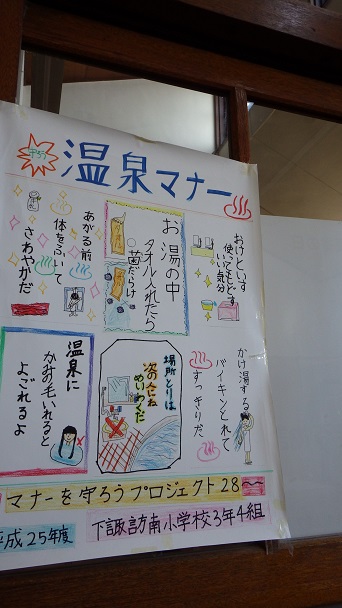 守ろう
温泉マナー
おけといす
使ってもどす
いい気分
お湯の中
タオル入れたら
菌だらけ
あがる前
体をふいて
さわやかだ
かけ湯する
バイキンとれて
すっきりだ
場所とりは
次の人にね
めいわくだ
温泉に
かみの毛いれると
よごれるよ
マナーを守ろうプロジェクト28〜〜
平成25年度
下諏訪南小学校3年4組